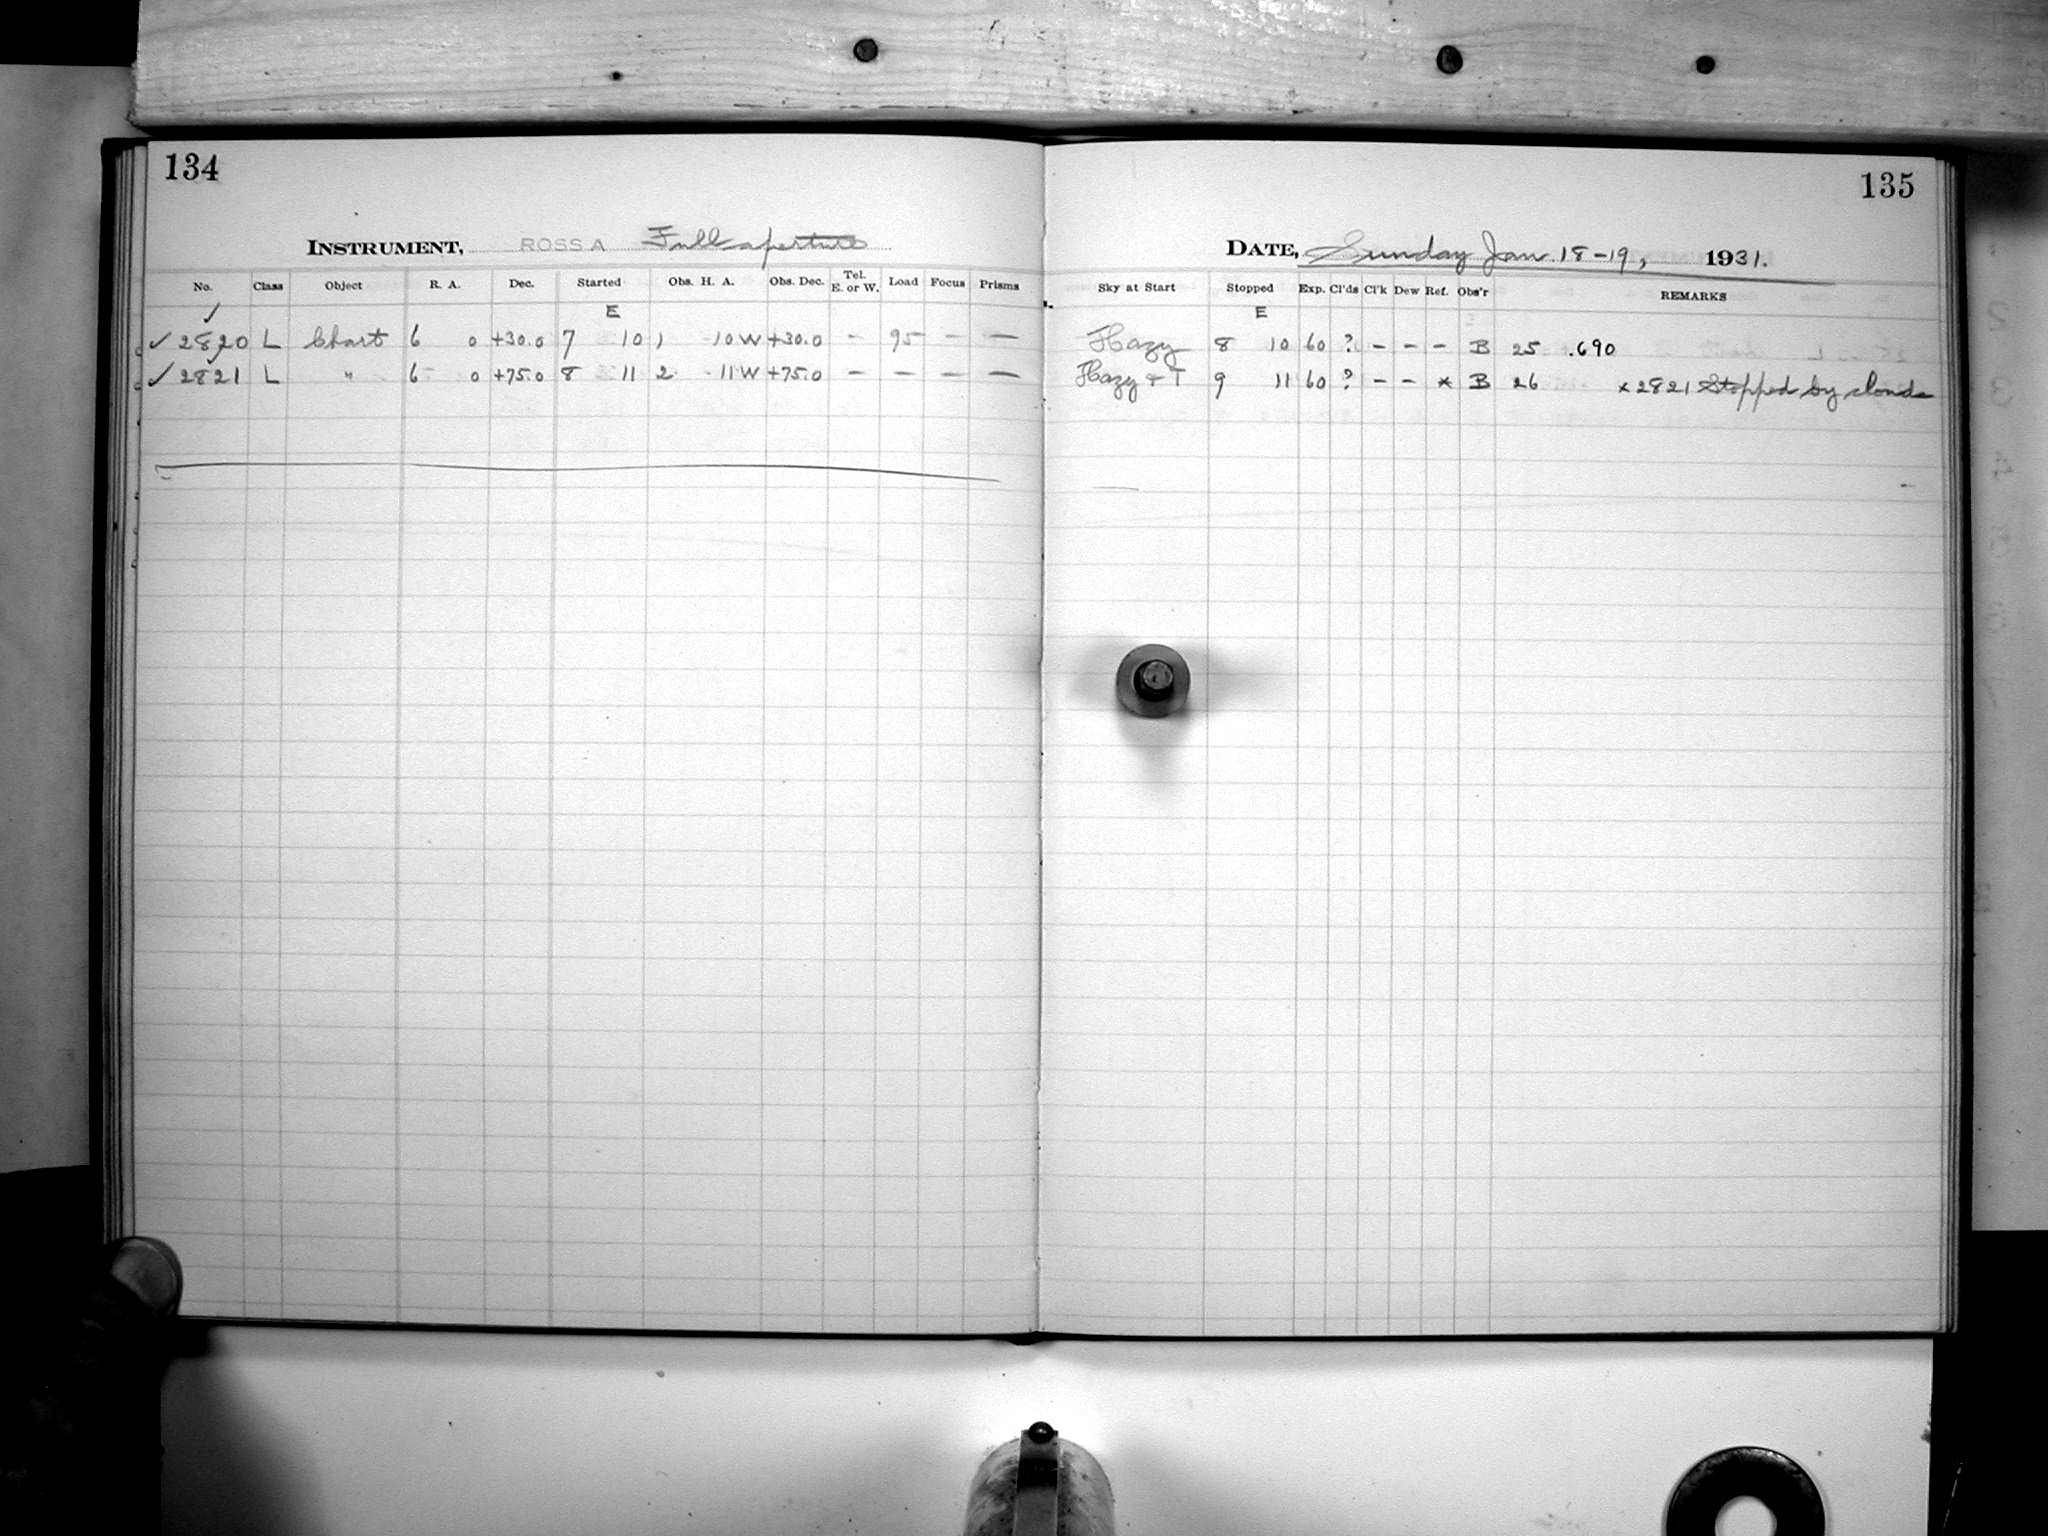 134
INSTRUMENT, ROSS A Full aperture
No. Class Object R. A. Dec. Started Obs. H. A. Obs. Dec. Tel. E. or W. Load Focus Prisms
✓ E
✓ 2820 L Chart 6 0 +30.0 7 10 1 10 W +30.0 - 95 - —
✓ 2821 L " 6 0 +75.0 8 11 2 11 W +75.0 - - - —
135
DATE, Sunday Jan 18-19, 1931.
Sky at Start Stopped Exp. Cl'ds Cl'k Dew Ref. Obs'r REMARKS
E
Hazy 8 10 60 ? - - - B 25 .690
Hazy + T 9 11 60 ? - - x B 26 x 2821 Stopped by clouds